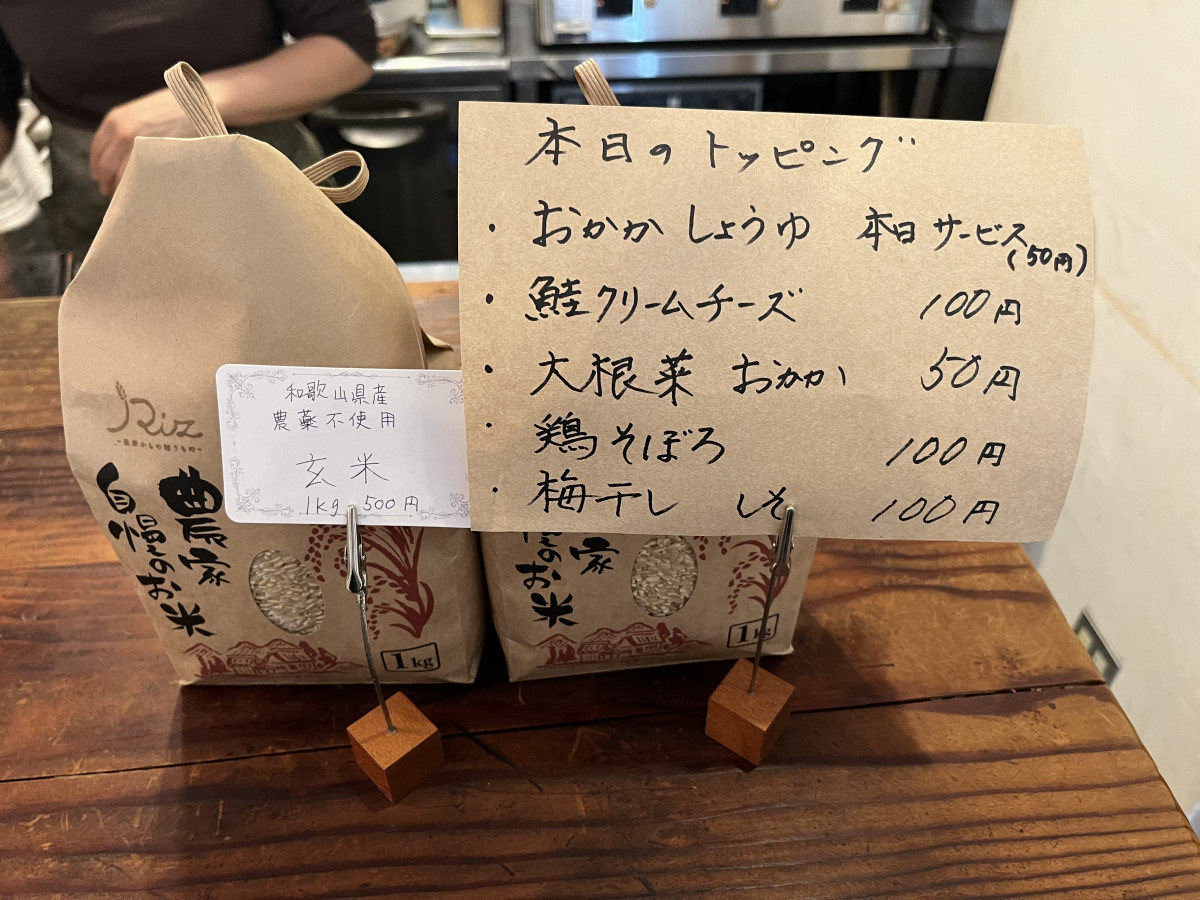 本日のトッピング
・おかかしょうゆ 本日サービス
(50円)
・鮭クリームチーズ 100円
・大根菜 おかか 50円
・鶏そぼろ 100円
・梅干し しそ 100円
和歌山県産
農薬不使用
玄米
1kg 500円
Riz
農家
自慢のお米
1kg
家
のお米
1kg